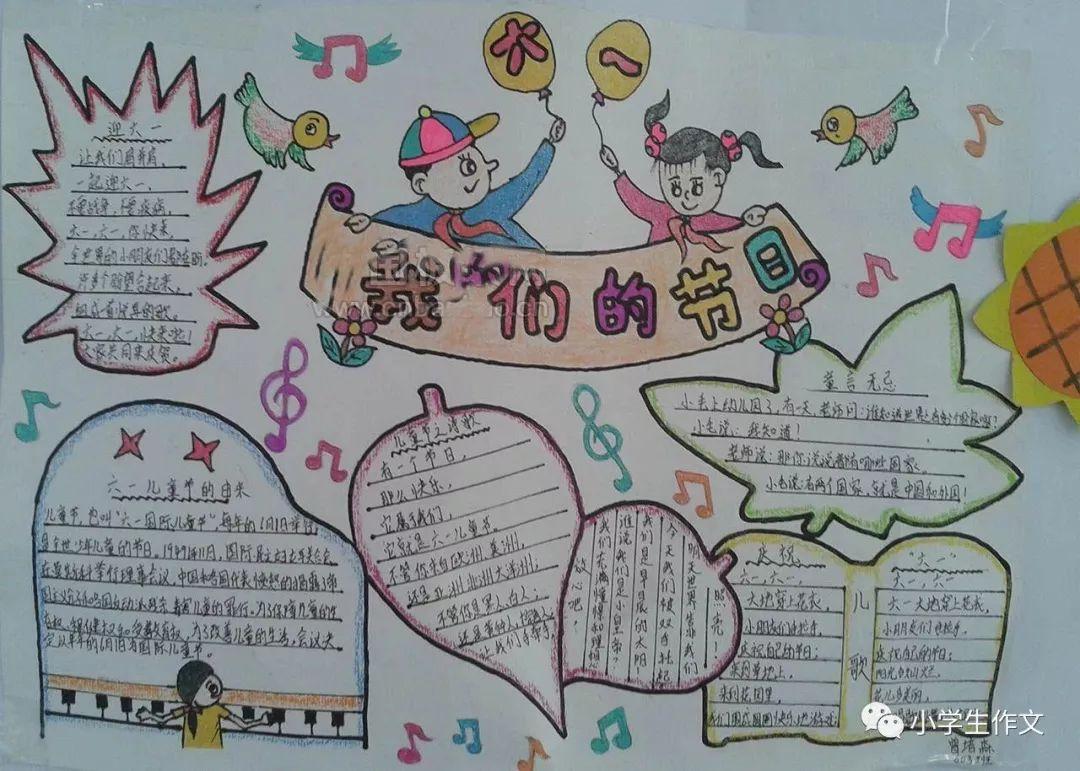 六一
我们的节日
迎六一
让我们肩并肩,
一起迎六一,
不要战争,不要疾病,
六一,六一,你快来,
全世界的小朋友们
许多个
组成
六一,六一,快来啦!
大家共同来庆贺。
六一儿童节的由来
儿童节,也叫“六一国际儿童节”每年的6月1日举行
是全世
儿童的节日,1949年11月,国际民主妇女联合会
在莫斯科举行理事会议,中国和各国代表愤怒的揭露了帝
国主义
各国反动派残杀、毒害儿童的罪行。为了保障儿童的生
存权、保健权和受教育权,为了改善儿童的生活,会议决
定以每年的6月1日为国际儿童节。
儿童节之诗歌
有一个节日,
那么快乐,
它属于我们,
它就是六一儿童节。
不管你来自欧洲、美洲,
还是亚洲、非洲、大洋洲,
不管你是黑人、白人,
让我们手
明天世界靠我们
照亮。
?天我们候双手托起
我们是早晨的太阳
谁说我们是小皇帝?
我们充满憧憬和理想
放心吧!
童言无忌
小毛上幼儿园了,有一天,老师问:谁知道世界上有多少个国家啊?
小毛说:我知道!
老师说:那你说说都有哪些国家。
小毛说:有两个国家,就是中国和外国!
庆祝
六一,六一,
大地穿上花衣,
小朋友们
庆祝自己的节日;
来到草地上,
来到花园里,
我们围成圆圈快乐地游戏
儿歌
“六一”
六一,六一,
六一大地穿上花衣,
小朋友们
庆祝自己的节日;
阳光
花儿多美丽,
小学生作文